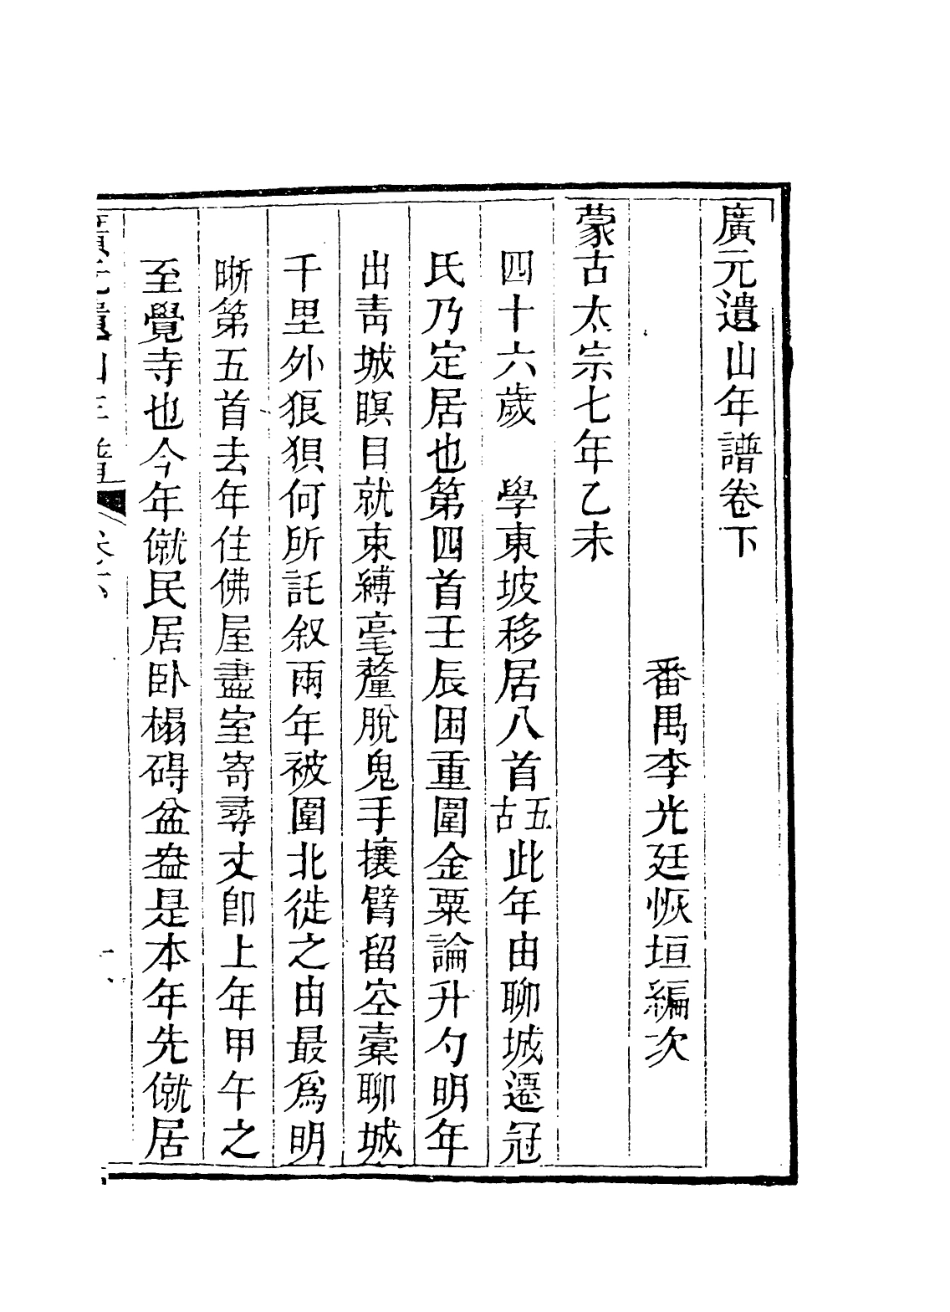 廣元遺山年譜卷下
番禺李光廷恢垣編次
蒙古太宗七年乙未
四十六歲 學東坡移居八首五古此年由聊城遷冠
氏乃定居也第四首壬辰困重圍金粟論升勺明年
出靑城瞑目就束縛毫釐脫鬼手攘臂留空橐聊城
千里外狼狽何所託叙兩年被圍北徙之由最爲明
晰第五首去年住佛屋盡室寄尋丈卽上年甲午之
至覺寺也今年僦民居卧榻碍盆盎是本年先僦居
廣元遺山年譜